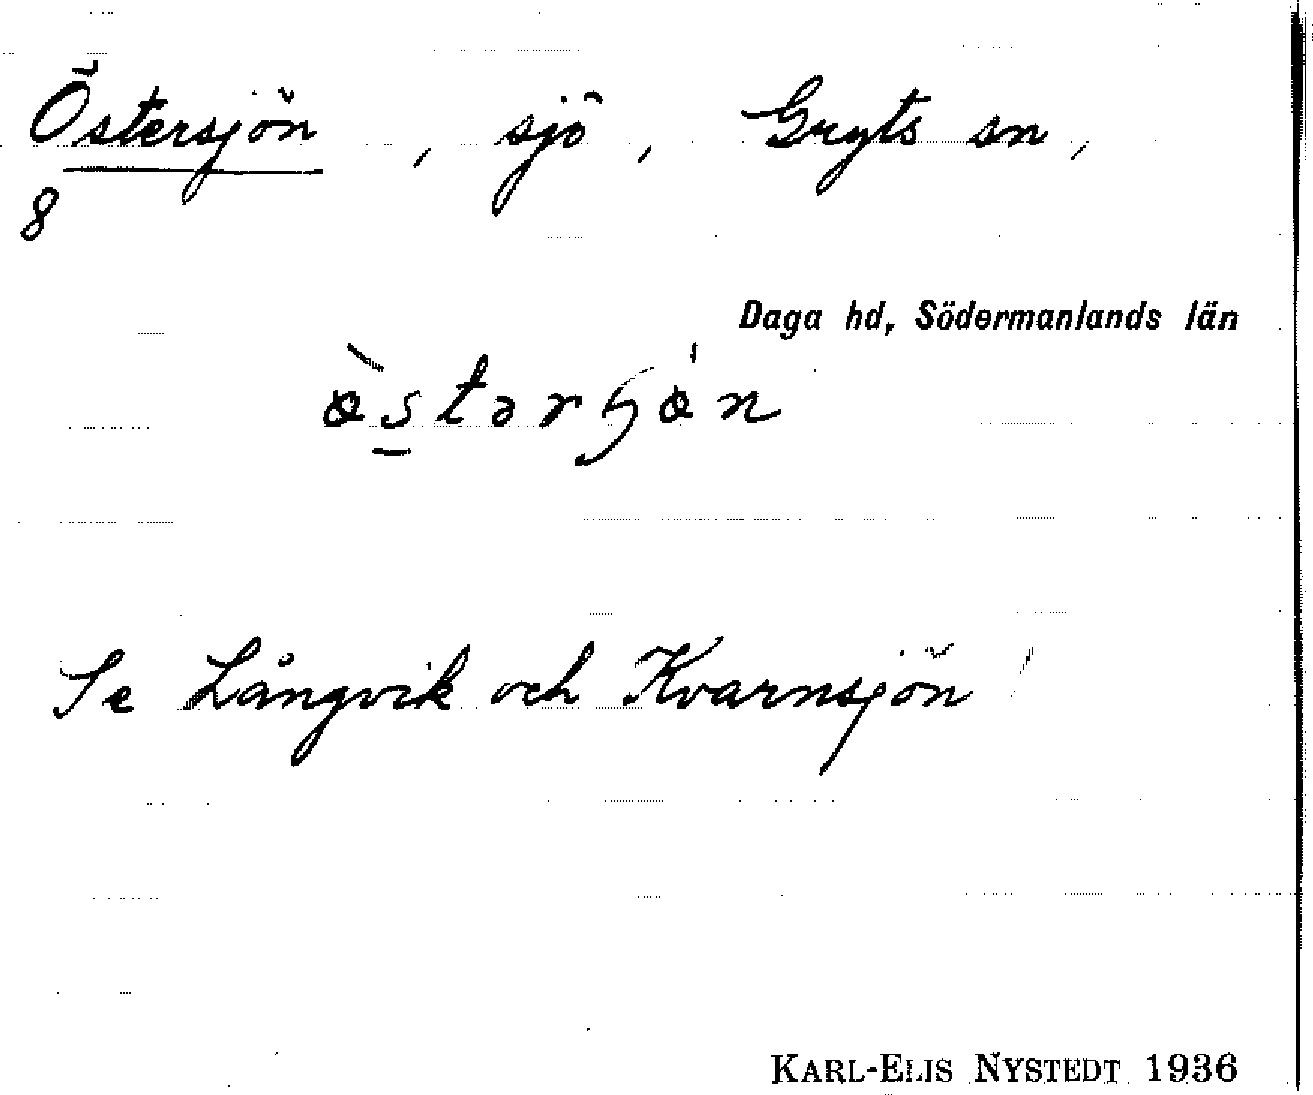 Östersjön, sjö, Gryts sn,
8
Daga hd, Södermanlands län
ò̀stərɧön
Se Långvik och Kvarnsjön!
KARL-ELIS NYSTEDT 1936